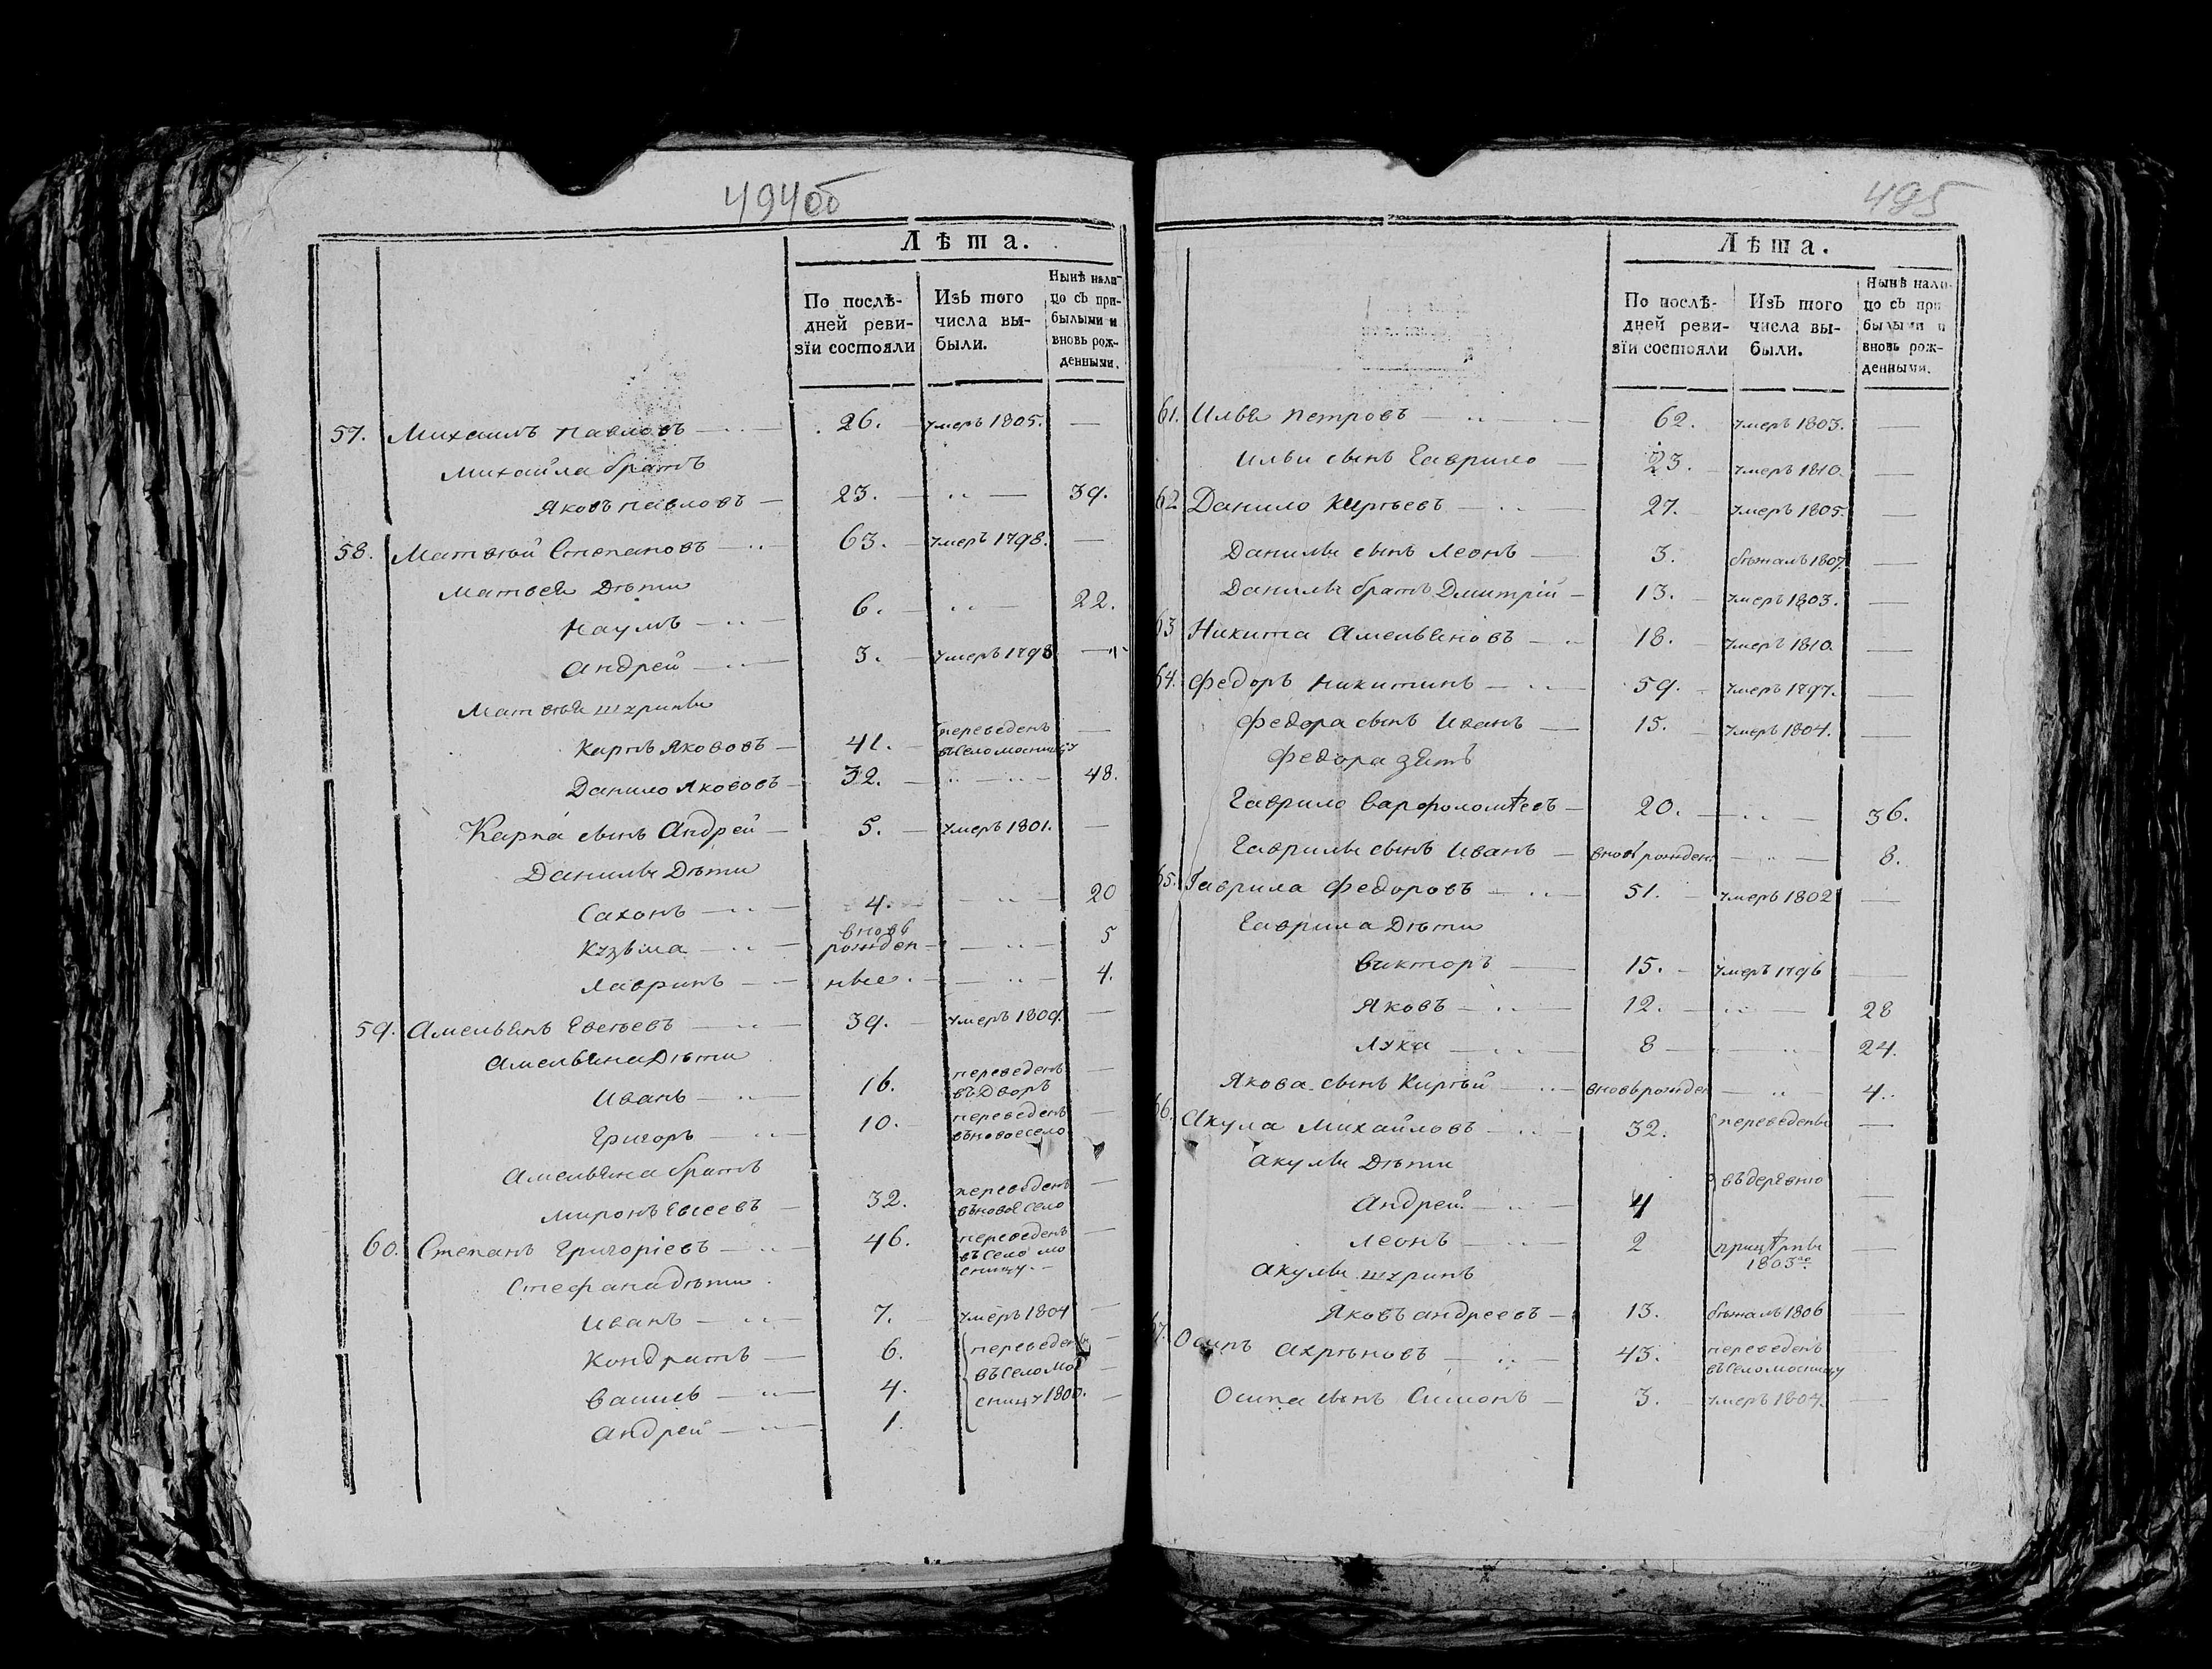 494об
Лѣта.
По послѣ-
дней реви-
зїи состояли
Изъ того
числа вы-
были.
Нынѣ нали-
цо съ при-
былыми и
вновь рож-
денными.
57. Михаилъ Павловъ — 26. умеръ 1805. —
Михайла братъ
Яковъ Павловъ — 23. — 39.
58. Матвѣй Степановъ — 63. умеръ 1798. —
Матвея Дѣти
Наумъ — 6. — 22.
Андрей — 3. умеръ 1798 —
Матвѣя шурины
Карпъ Якововъ — 41. переведенъ —
въ Село Мостищу
Данило Якововъ — 32. — 48.
Карпа сынъ Андрей — 5. умеръ 1801. —
Данилы Дѣти
Сахонъ — 4. — 20
вновь
Кузьма — рожден — 5
Лавринъ — ные. — 4.
59. Амельянъ Евсѣевъ — 39. умеръ 1809. —
Амельяна Дѣти
Иванъ — 16. переведенъ —
въ Дворъ
Григоръ — 10. переведенъ —
въ новое село
Амельяна братъ
Миронъ Евсеевъ — 32. переведенъ —
въ новое село
60. Степанъ Григоріевъ — 46. переведенъ —
въ Село Мо
сницу. —
Стефана дѣти
Иванъ — 7. умеръ 1804 —
Кондратъ — 6. переведены —
въ село Мо
Василь — 4. сницу 1800. —
Андрей — 1.
495
Лѣта.
По послѣ-
дней реви-
зїи состояли
Изъ того
числа вы-
были.
Нынѣ нали-
цо съ при-
былыми и
вновь рож-
денными.
61. Илья Петровъ — 62. умеръ 1803. —
Ильи сынъ Гаврило — 23. умеръ 1810. —
62 Данило Кирѣевъ — 27. умеръ 1805. —
Данилы сынъ Леонъ — 3. бѣжалъ 1807. —
Данилы братъ Дмитрій — 13. умеръ 1803. —
63 Никита Амельяновъ — 18. умеръ 1810. —
64. Федоръ Никитинъ — 59. умеръ 1797. —
Федора сынъ Иванъ — 15. умеръ 1804. —
Федора зять
Гаврило Варфоломѣевъ — 20. — 36.
Гаврилы сынъ Иванъ — вновь рожден — 8.
65. Гаврила Федоровъ — 51. умеръ 1802 —
Гаврила Дѣти
Викторъ — 15. умеръ 1796 —
Яковъ — 12. — 28
Лука — 8 — 24.
Якова сынъ Кирѣй — вновь рожден — 4.
66. Акула Михайловъ — 32. переведены —
Акулы Дѣти
въ деревню
Андрей — 4 —
Леонъ — 2 —
1803го
Акулы шуринъ
Яковъ Андреевъ — 13. бѣжалъ 1806 —
67. Осипъ Ахрѣновъ — 43. переведенъ —
въ Село Мостищу
Осипа сынъ Симонъ — 3. умеръ 1804. —